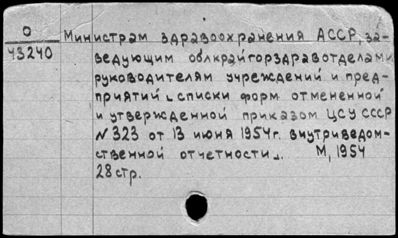 О
43240
Министрам здравоохранения АССР, за-
ведующим облкрайгорздравотделами,
руководителям учреждений и пред-
приятий [списки форм отмененной
и утвержденной приказом ЦСУ СССР
N 323 от 13 июня 1954г. внутриведом-
ственной отчетности]. М, 1954
28 стр.